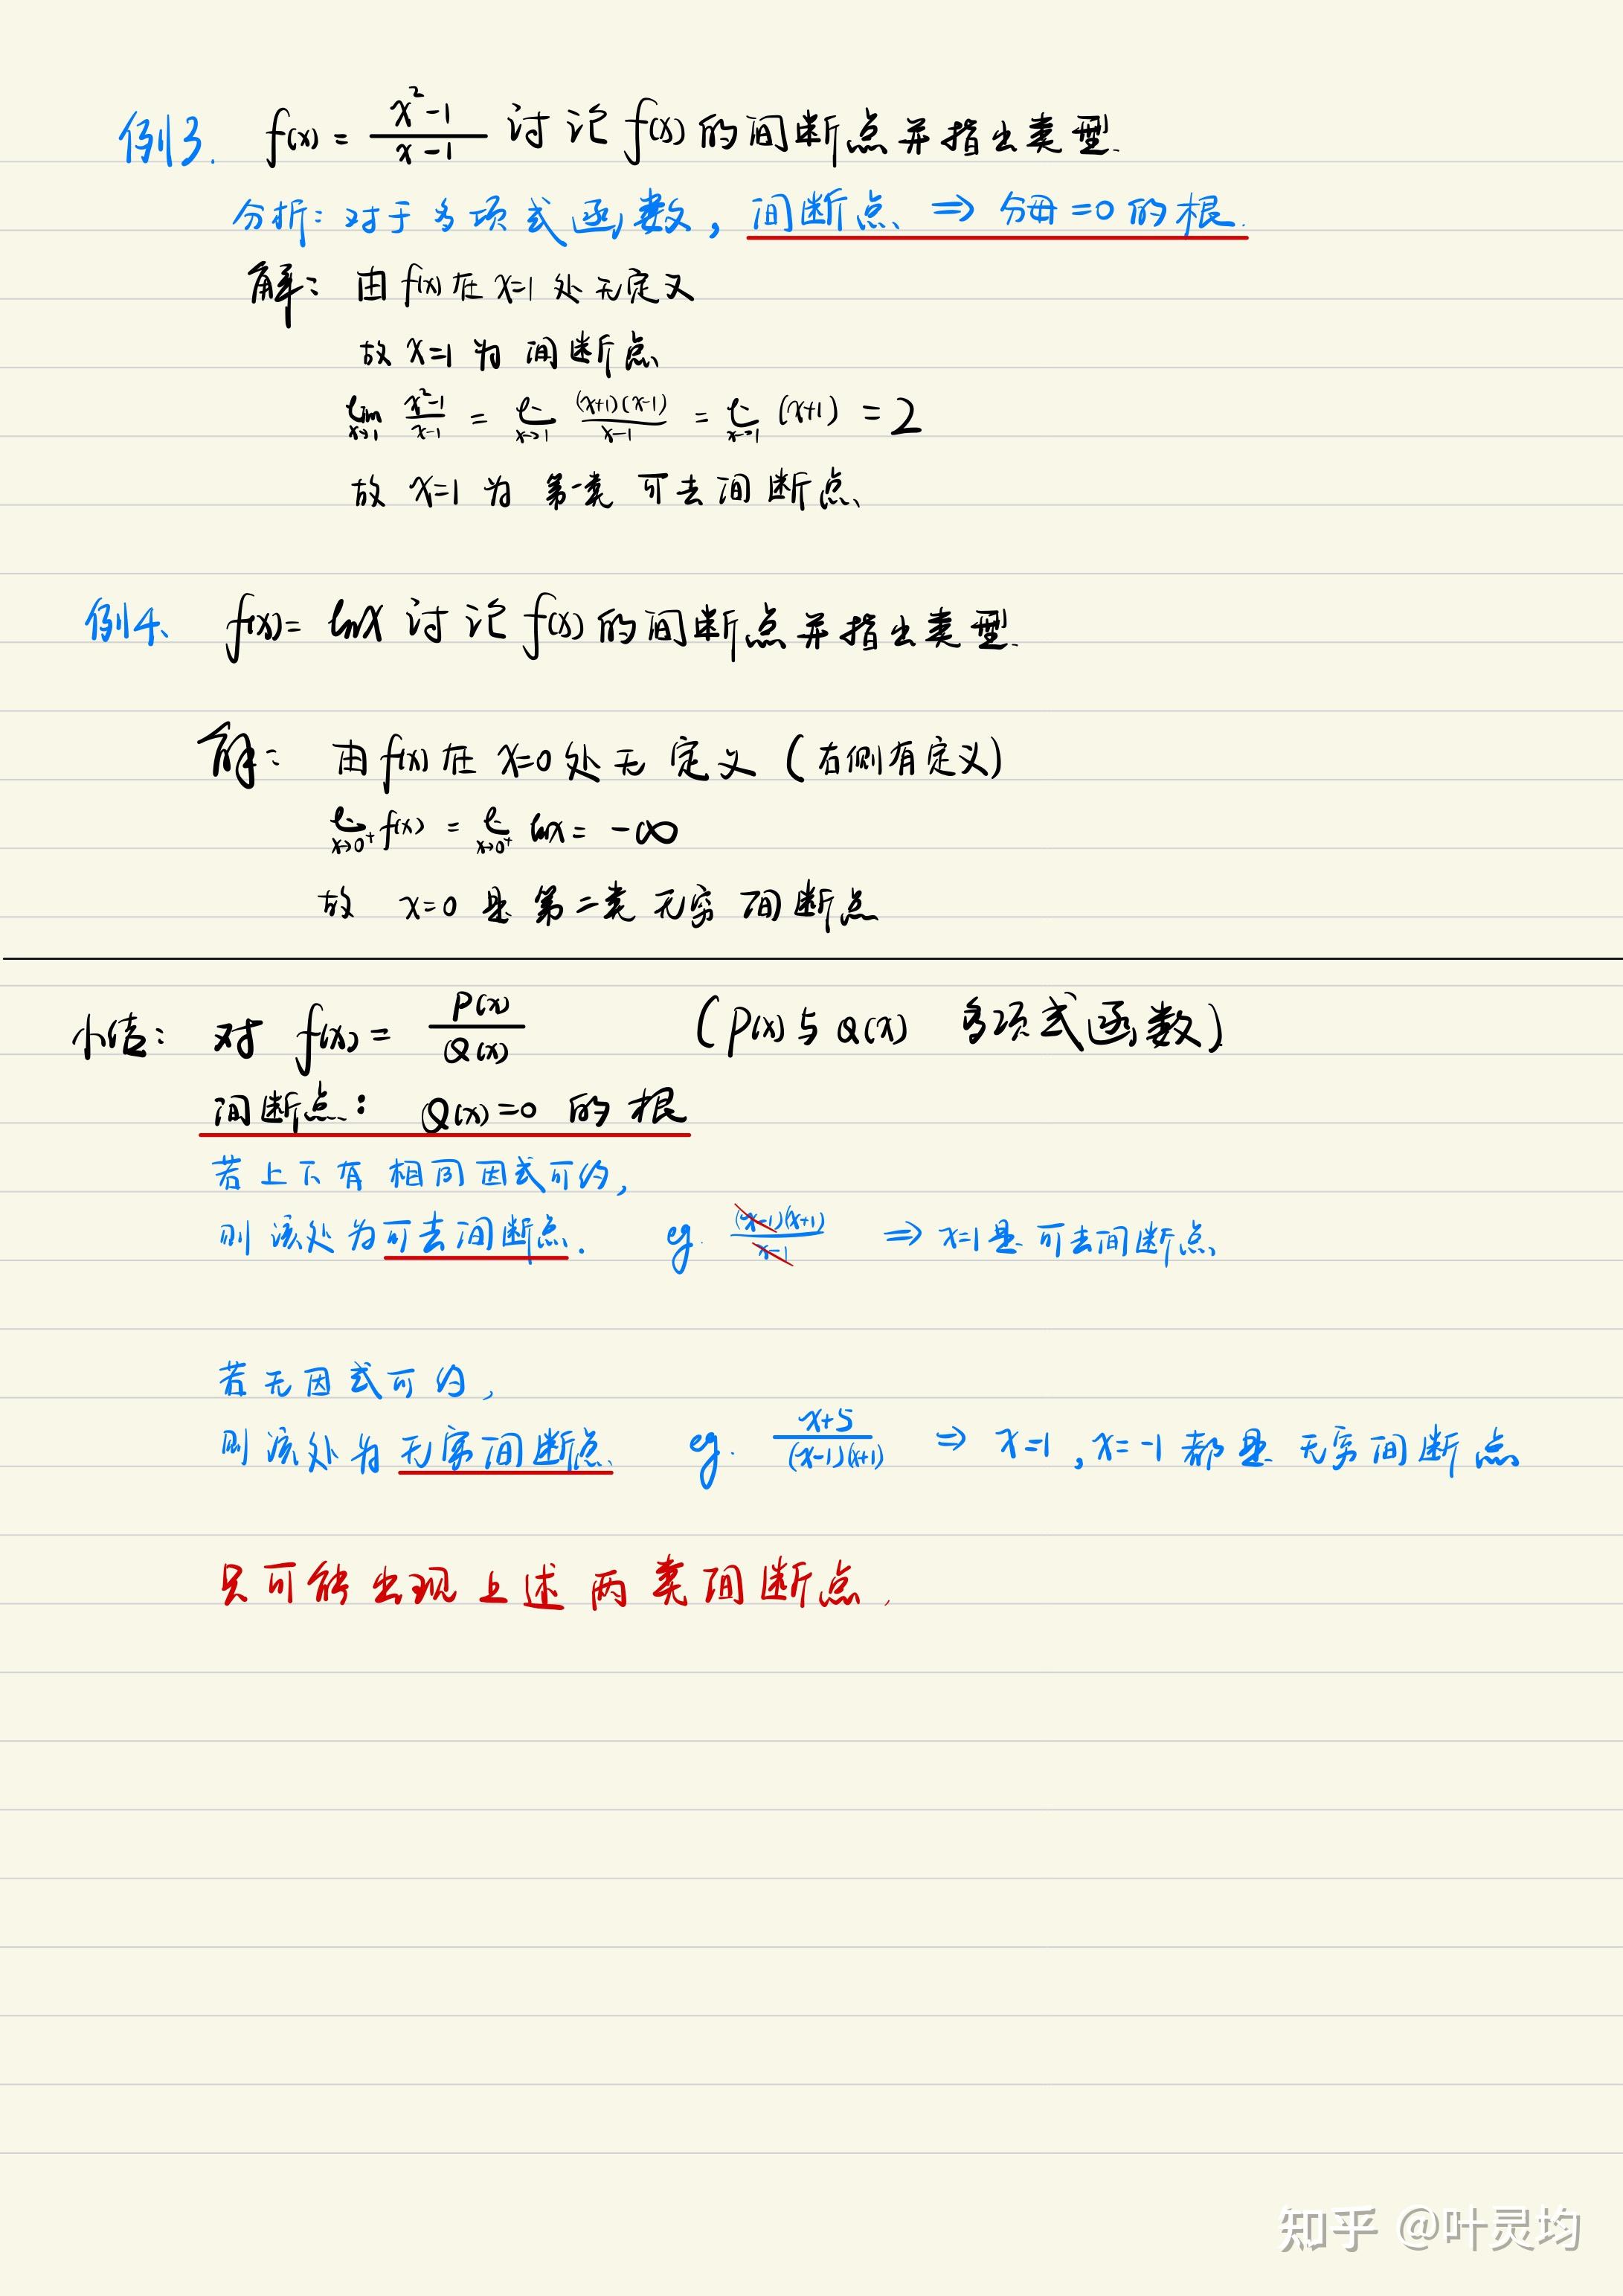 例3. f(x) = (x²-1)/(x-1) 讨论f(x)的间断点并指出类型.
分析:对于多项式函数,间断点 ⇒ 分母=0的根.
解: 由f(x)在x=1处无定义
故x=1为间断点
lim_{x→1} (x²-1)/(x-1) = lim_{x→1} (x+1)(x-1)/(x-1) = lim_{x→1} (x+1) = 2
故 x=1 为 第一类 可去间断点
例4、 f(x)=lnx 讨论f(x)的间断点并指出类型.
解: 由f(x)在x=0处无定义(右侧有定义)
lim_{x→0⁺} f(x) = lim_{x→0⁺} lnx = -∞
故 x=0 是第二类无穷间断点
小结: 对 f(x) = P(x)/Q(x) (P(x)与Q(x) 多项式函数)
间断点: Q(x)=0 的根
若上下有相同因式可约,
则该处为可去间断点. eg. (x-1)(x+1)/(x-1) ⇒ x=1是可去间断点
若无因式可约,
则该处为无穷间断点. eg. (x+5)/((x-1)(x+1)) ⇒ x=1,x=-1都是无穷间断点
只可能出现上述两类间断点.
知乎 @叶灵均